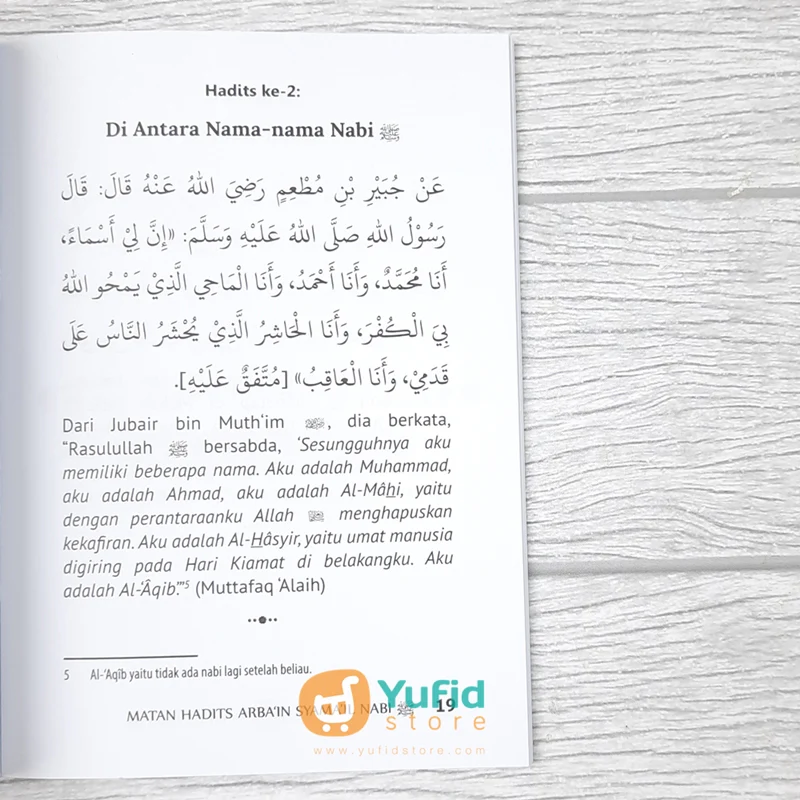 Hadits ke-2:
Di Antara Nama-nama Nabi ﷺ
عَنْ جُبَيْرِ بْنِ مُطْعِمٍ رَضِيَ اللهُ عَنْهُ قَالَ: قَالَ
رَسُوْلُ اللهِ صَلَّى اللهُ عَلَيْهِ وَسَلَّمَ: «إِنَّ لِيْ أَسْمَاءً،
أَنَا مُحَمَّدٌ، وَأَنَا أَحْمَدُ، وَأَنَا الْمَاحِي الَّذِيْ يَمْحُو اللهُ
بِيَ الْكُفْرَ، وَأَنَا الْحَاشِرُ الَّذِيْ يُحْشَرُ النَّاسُ عَلَى
قَدَمِيْ، وَأَنَا الْعَاقِبُ» [مُتَّفَقٌ عَلَيْهِ].
Dari Jubair bin Muth‘im , dia berkata,
“Rasulullah ﷺ bersabda, ‘Sesungguhnya aku
memiliki beberapa nama. Aku adalah Muhammad,
aku adalah Ahmad, aku adalah Al-Mâhi, yaitu
dengan perantaraanku Allah menghapuskan
kekafiran. Aku adalah Al-Hâsyir, yaitu umat manusia
digiring pada Hari Kiamat di belakangku. Aku
adalah Al-‘Âqib.’”⁵ (Muttafaq ‘Alaih)
5 Al-‘Aqîb yaitu tidak ada nabi lagi setelah beliau.
MATAN HADITS ARBA‘IN SYAMA‘IL NABI ﷺ 19
Yufid
store
www.yufidstore.com